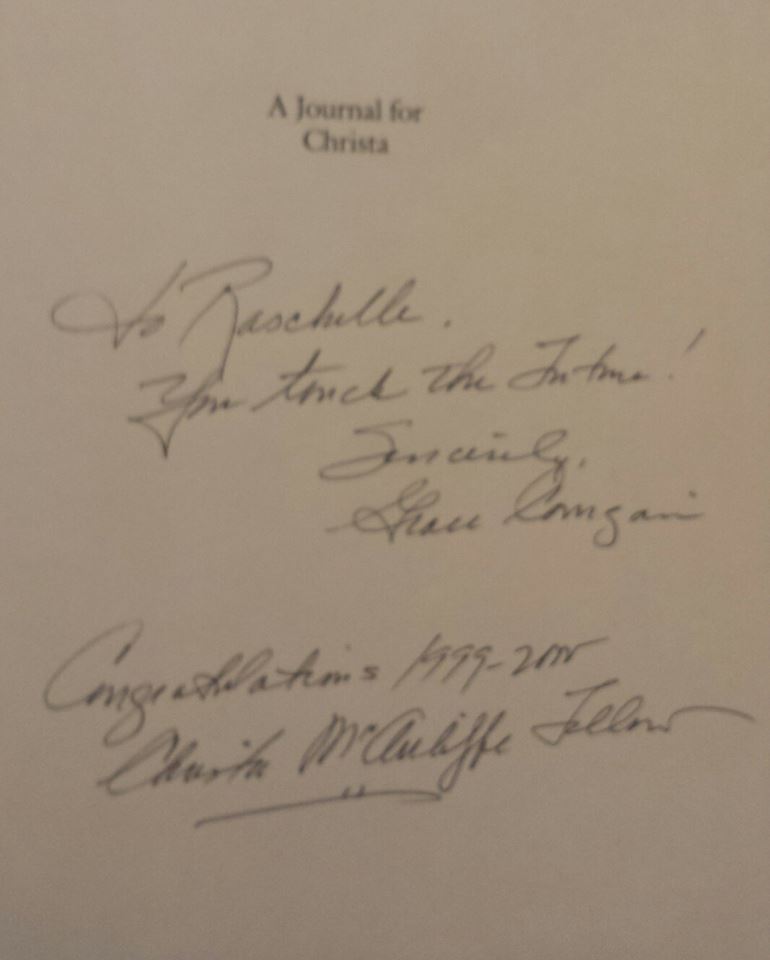 A Journal for
Christa
To Raschelle.
You touch the Future!
Sincerely,
Grace Corrigan
Congratulations 1999-2000
Christa McAuliffe Fellow